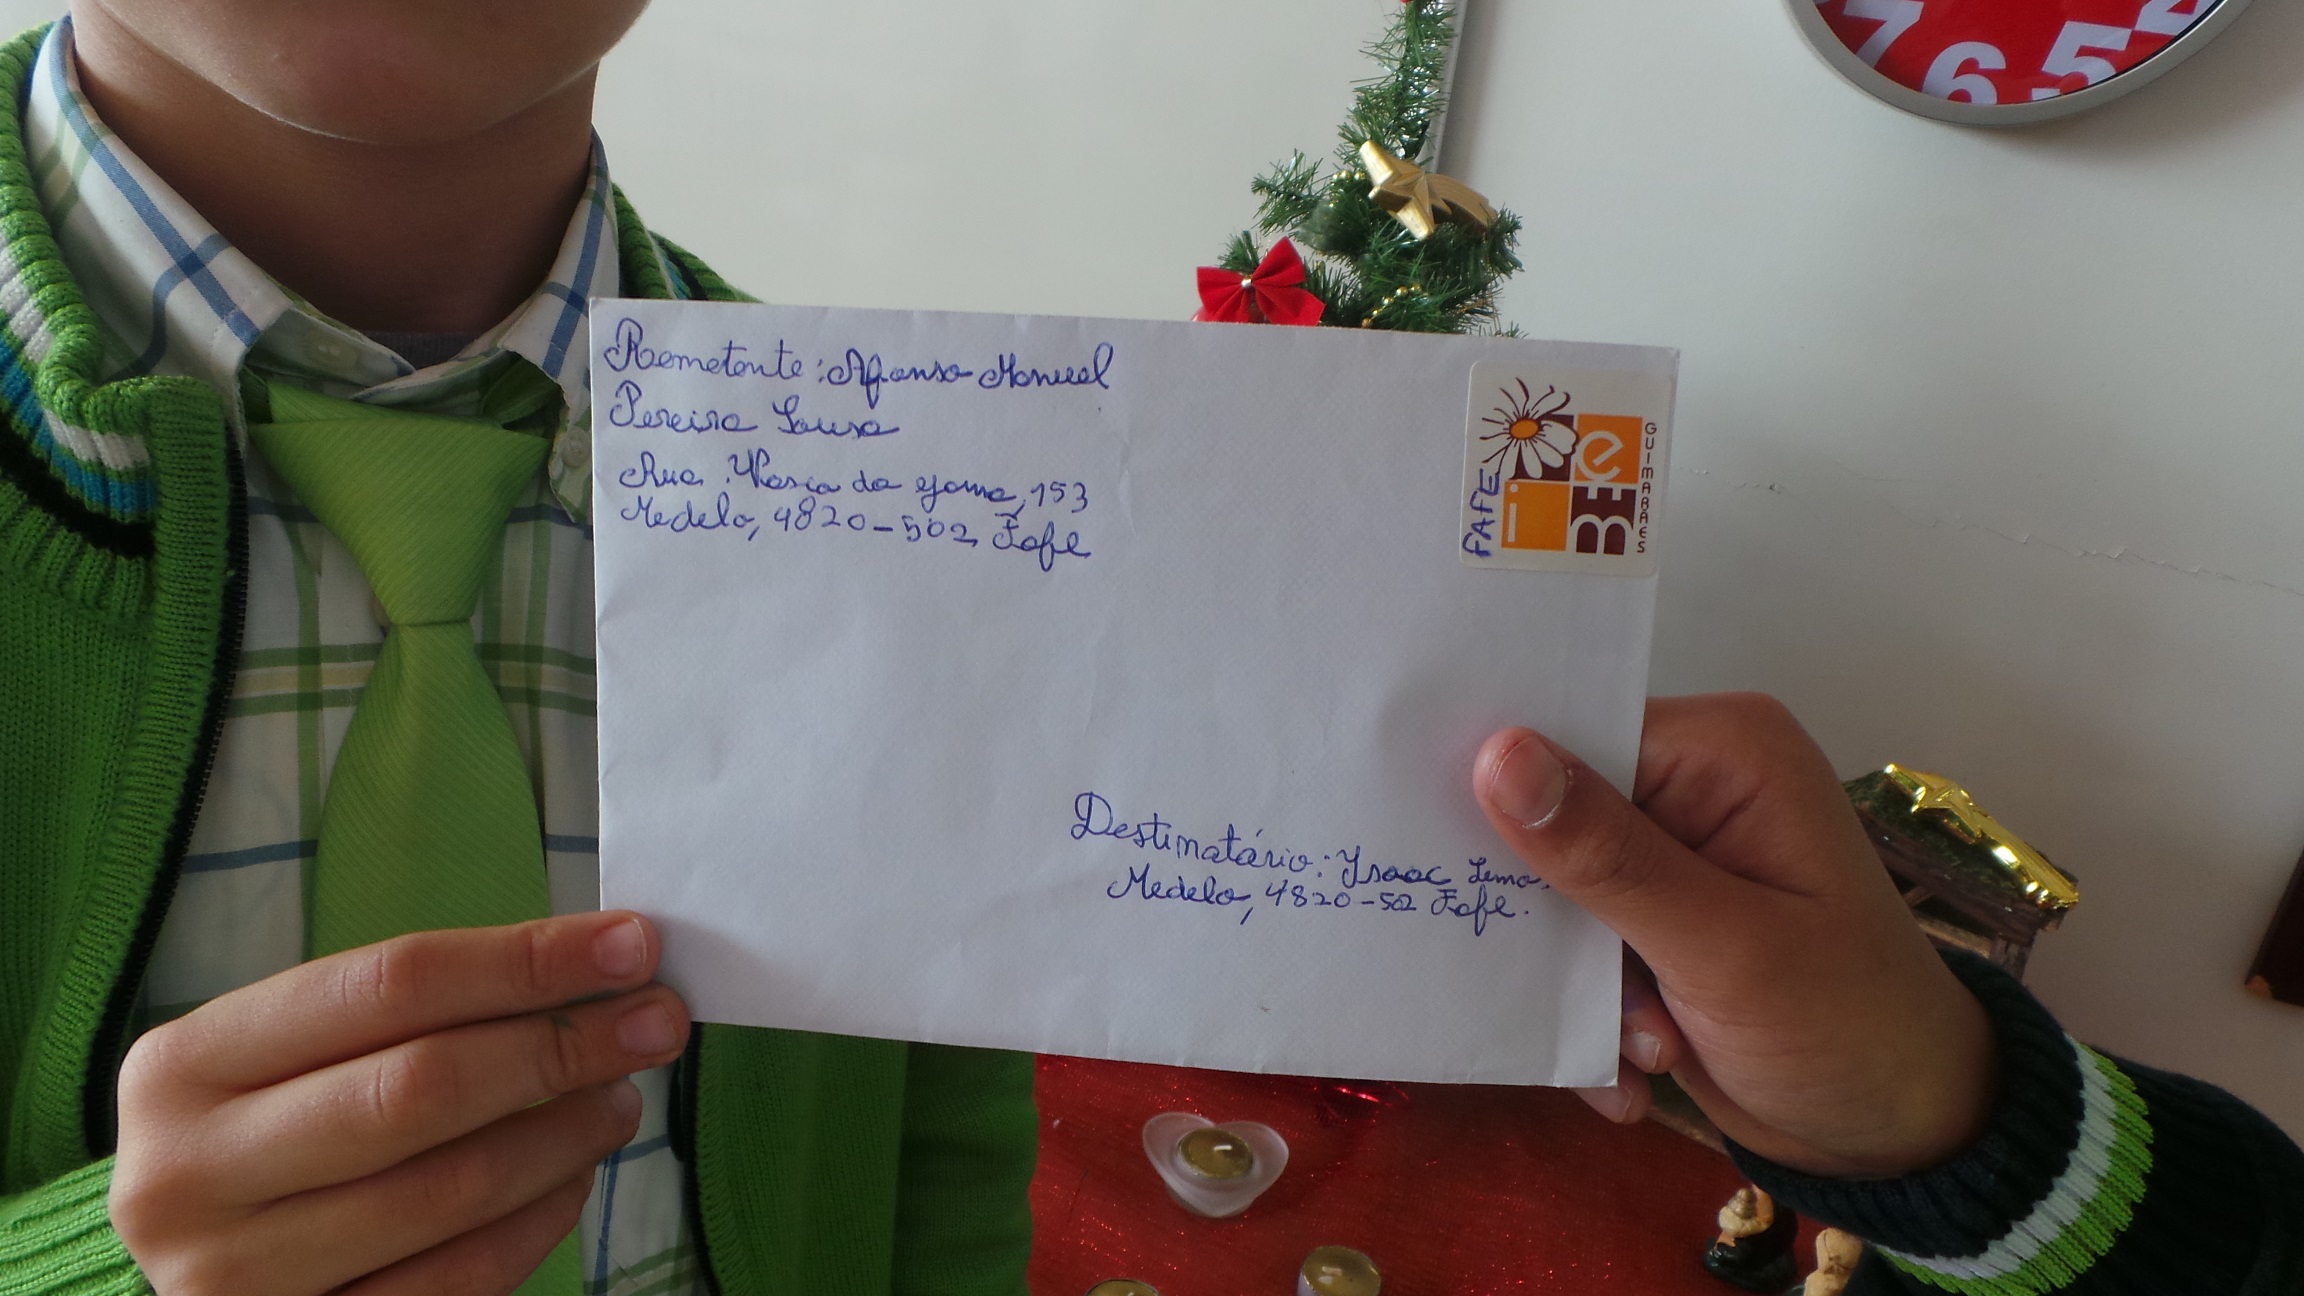 Remetente: Afonso Manuel
Pereira Sousa
Rua Vasco da gama, 153
Medelo, 4820-502 Fafe
FAFE
i e
ME
GUIMARAES
Destinatário: Isaac
Medelo, 4820-502 Fafe.
7 6 5